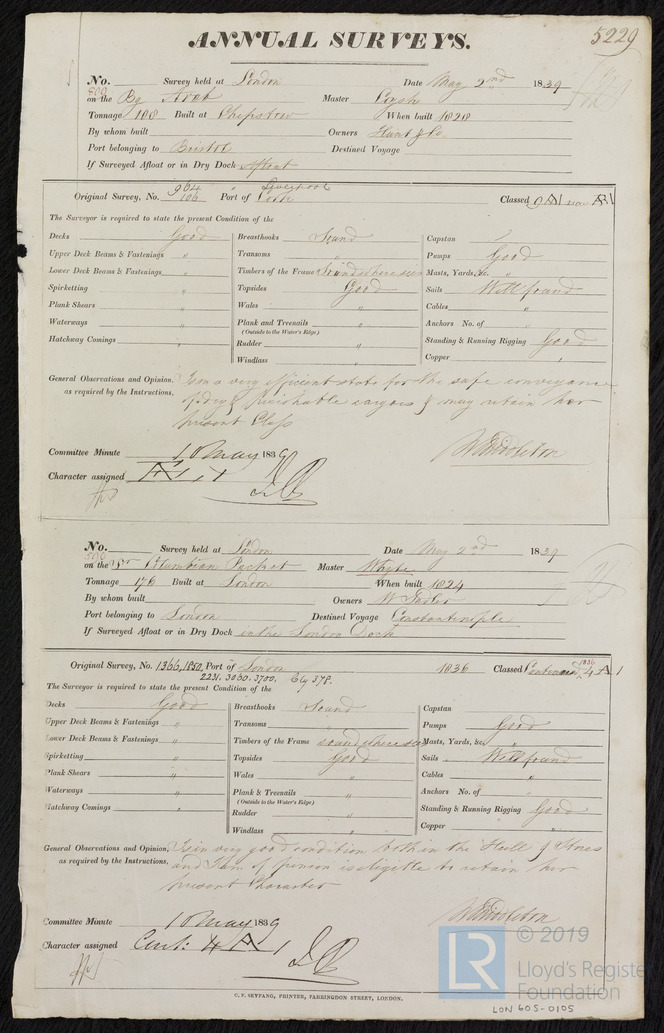 ANNUAL SURVEYS.
5229
No. Survey held at London Date May 2nd 1839
on the Bg Arab Master
Tonnage 108 Built at Chepstow When built 1828
By whom built Owners Hunt & Co
Port belonging to Bristol Destined Voyage
If Surveyed Afloat or in Dry Dock Afloat
964 Liverpool
Original Survey, No. 106 Port of Cork Classed
The Surveyor is required to state the present Condition of the
Decks Good Breasthooks Sound Capstan
Upper Deck Beams & Fastenings " Transoms Pumps Good
Lower Deck Beams & Fastenings " Timbers of the Frame Sound where seen Masts, Yards, &c. "
Spirketting " Topsides Good Sails Well found
Plank Shears " Wales " Cables "
Waterways " Plank and Treenails " Anchors No. of "
(Outside to the Water's Edge)
Hatchway Comings " Rudder " Standing & Running Rigging Good
Windlass " Copper "
General Observations and Opinion, Is in a very efficient state for the safe conveyance
as required by the Instructions. of dry & perishable cargoes & may retain her
present Class
Committee Minute 10 May 1839 W Middleton
Character assigned Æ 1
No. Survey held at London Date May 2nd 1839
590
on the Columbian Packet Master Whyte
Tonnage 176 Built at London When built 1824
By whom built Owners W Tadler
Port belonging to London Destined Voyage Constantinople
If Surveyed Afloat or in Dry Dock in the London Dock
Original Survey, No. 1366, 1850, Port of London 1836 Classed Continued 1836 4 A 1
2231. 3030. 3700. Cly 378.
The Surveyor is required to state the present Condition of the
Decks Good Breasthooks Sound Capstan
Upper Deck Beams & Fastenings " Transoms Pumps Good
Lower Deck Beams & Fastenings " Timbers of the Frame sound where seen Masts, Yards, &c. "
Spirketting " Topsides Good Sails Well found
Plank Shears " Wales " Cables "
Waterways " Plank & Treenails " Anchors No. of "
(Outside to the Water's Edge)
Hatchway Comings " Rudder " Standing & Running Rigging Good
Windlass " Copper "
General Observations and Opinion, Is in very good condition both in the Hull & Stores
as required by the Instructions. and I am of opinion is eligible to retain her
present Character
Committee Minute 10 May 1839 W Middleton
Character assigned Cont: 4 A 1
C. F. SEYFANG, PRINTER, FARRINGDON STREET, LONDON.
© 2019
LR Lloyd's Register
Foundation
LON 605-0105